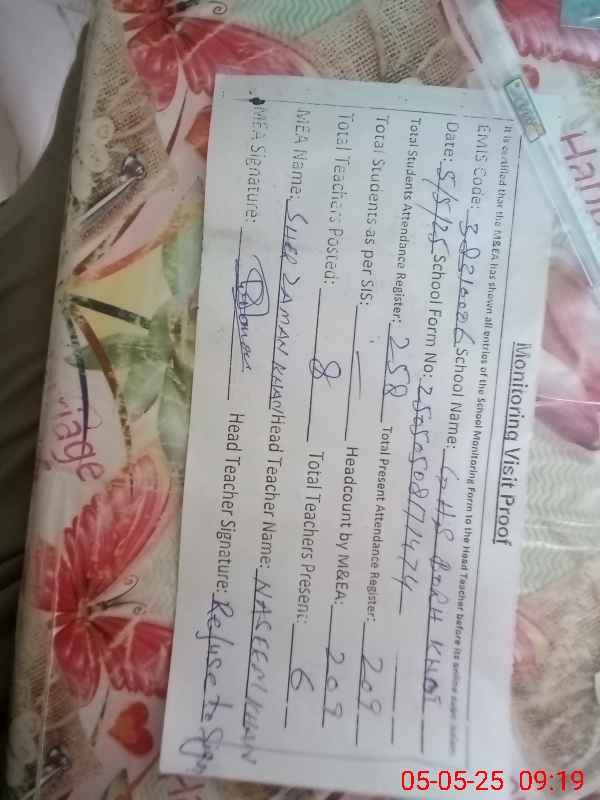 Monitoring Visit Proof
It is certified that the M&EA has shown all entries of the School Monitoring Form to the Head Teacher before its online
EMIS Code: 38210086 School Name: GHS
Date: 5/5/25 School Form No: 25050508171474
Total Students Attendance Register: 258 Total Present Attendance Register: 209
Total Students as per SIS: — Headcount by M&EA: 209
Total Teachers Posted: 8 Total Teachers Present: 6
MEA Name: SHER ZAMAN KHAN Head Teacher Name: NASEEM KHAN
MEA Signature: Head Teacher Signature: Refuse to Sign
riage
05-05-25 09:19